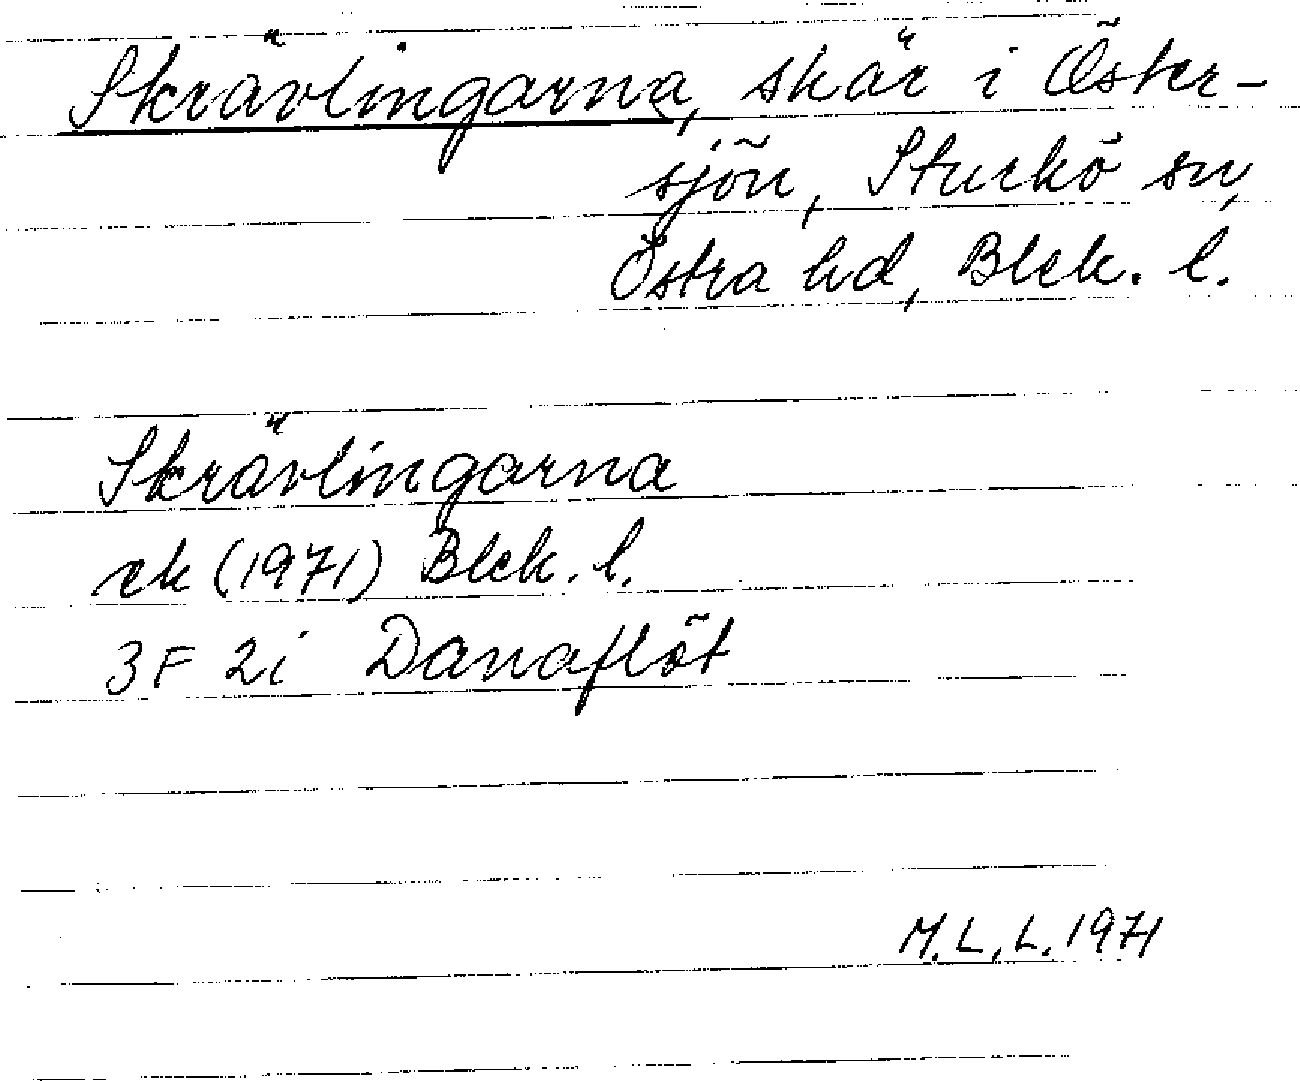 Skrävlingarna, skär i Öster-
sjön, Sturkö sn,
Östra hd, Blek. l.
Skrävlingarna
ek (1971) Blek. l.
3F 2i Danaflöt
M.L.L. 1971